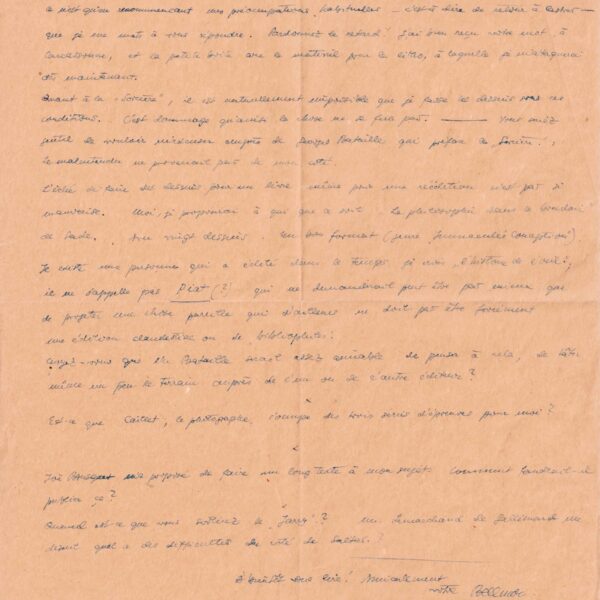 ce n'est qu'en recommençant mes préoccupations habituelles – c'est à dire de retour à Castres –
que je me mets à vous répondre. Pardonnez le retard! J'ai bien reçu votre mot, à
Carcassonne, et la petite boîte avec le matériel pour la litho, à laquelle je m'attaquerai
dès maintenant.
Quant à la "Sorcière", il est naturellement impossible que je fasse les dessins sous ces
conditions. C'est dommage qu'ainsi la chose ne se fera pas. — Vous seriez
gentil de vouloir m'excuser auprès de Georges Bataille qui préface la Sorcière,
le malentendu ne provenant pas de mon côté.
L'idée de faire des dessins pour un livre même pour une réédition n'est pas si
mauvaise. Moi, je proposerai à qui que ce soit "La philosophie dans le boudoir"
de Sade. Du vingt dessins. Un bon format (genre Immaculée Conception)
Je crois une personne qui a édité dans le temps, je crois, "l'histoire de l'œil",
il ne s'appelle pas Piat (?) qui ne demanderait peut être pas mieux que
de projeter une chose pareille qui d'ailleurs ne doit pas être forcément
une édition clandestine ou de bibliophiles.
Croyez-vous que M. Bataille serait assez aimable de penser à cela, de tâter
même un peu le terrain auprès de l'un ou de l'autre éditeur?
Est-ce que Caillet, le photographe, s'occupe des trois séries d'épreuves pour moi?
Joë Bousquet me propose de faire un long texte à mon sujet. Comment faudrait-il
publier ça?
Quand est-ce que vous sortirez le "Jarry"? un
des difficultés du côté de
À bientôt vous lire! Amicalement
votre Bellmer.